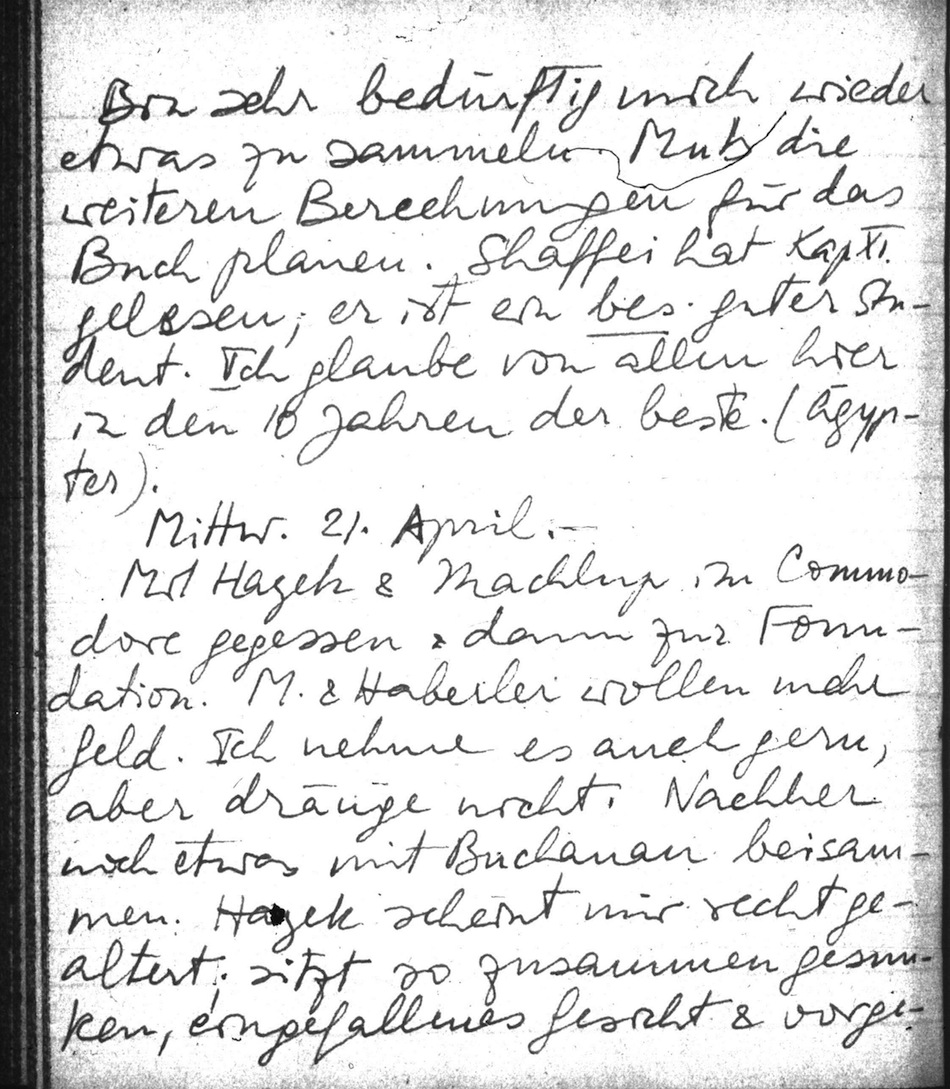 Bin sehr bedürftig mich wieder
etwas zu sammeln. Muß die
weiteren Berechnungen für das
Buch planen. Shaffei hat Kap XI.
gelesen; er ist ein bes. guter Stu-
dent. Ich glaube von allen hier
in den 10 Jahren der beste. (Ägyp-
ter).
Mittw. 21. April.–
Mit Hayek & Machlup im Commo-
dore gegessen & dann zur Foun-
dation. M. & Haberler wollen mehr
Geld. Ich nehme es auch gern,
aber dränge nicht. Nachher
noch etwas mit Buchanan beisam-
men. Hayek scheint mir recht ge-
altert; sitzt so zusammen gesun-
ken, eingefallenes Gesicht & vorge-